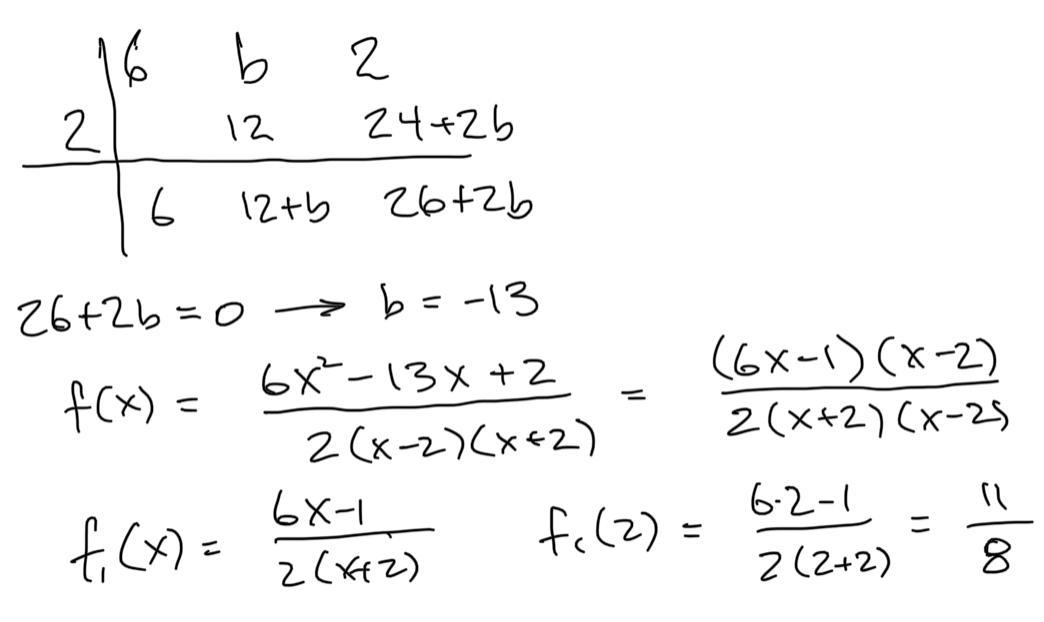 6 b 2
2 12 24+2b
6 12+b 26+2b
26+2b=0 → b=-13
f(x) = (6x²-13x+2)/(2(x-2)(x+2)) = ((6x-1)(x-2))/(2(x+2)(x-2))
f₁(x) = (6x-1)/(2(x+2)) f₁(2) = (6·2-1)/(2(2+2)) = 11/8